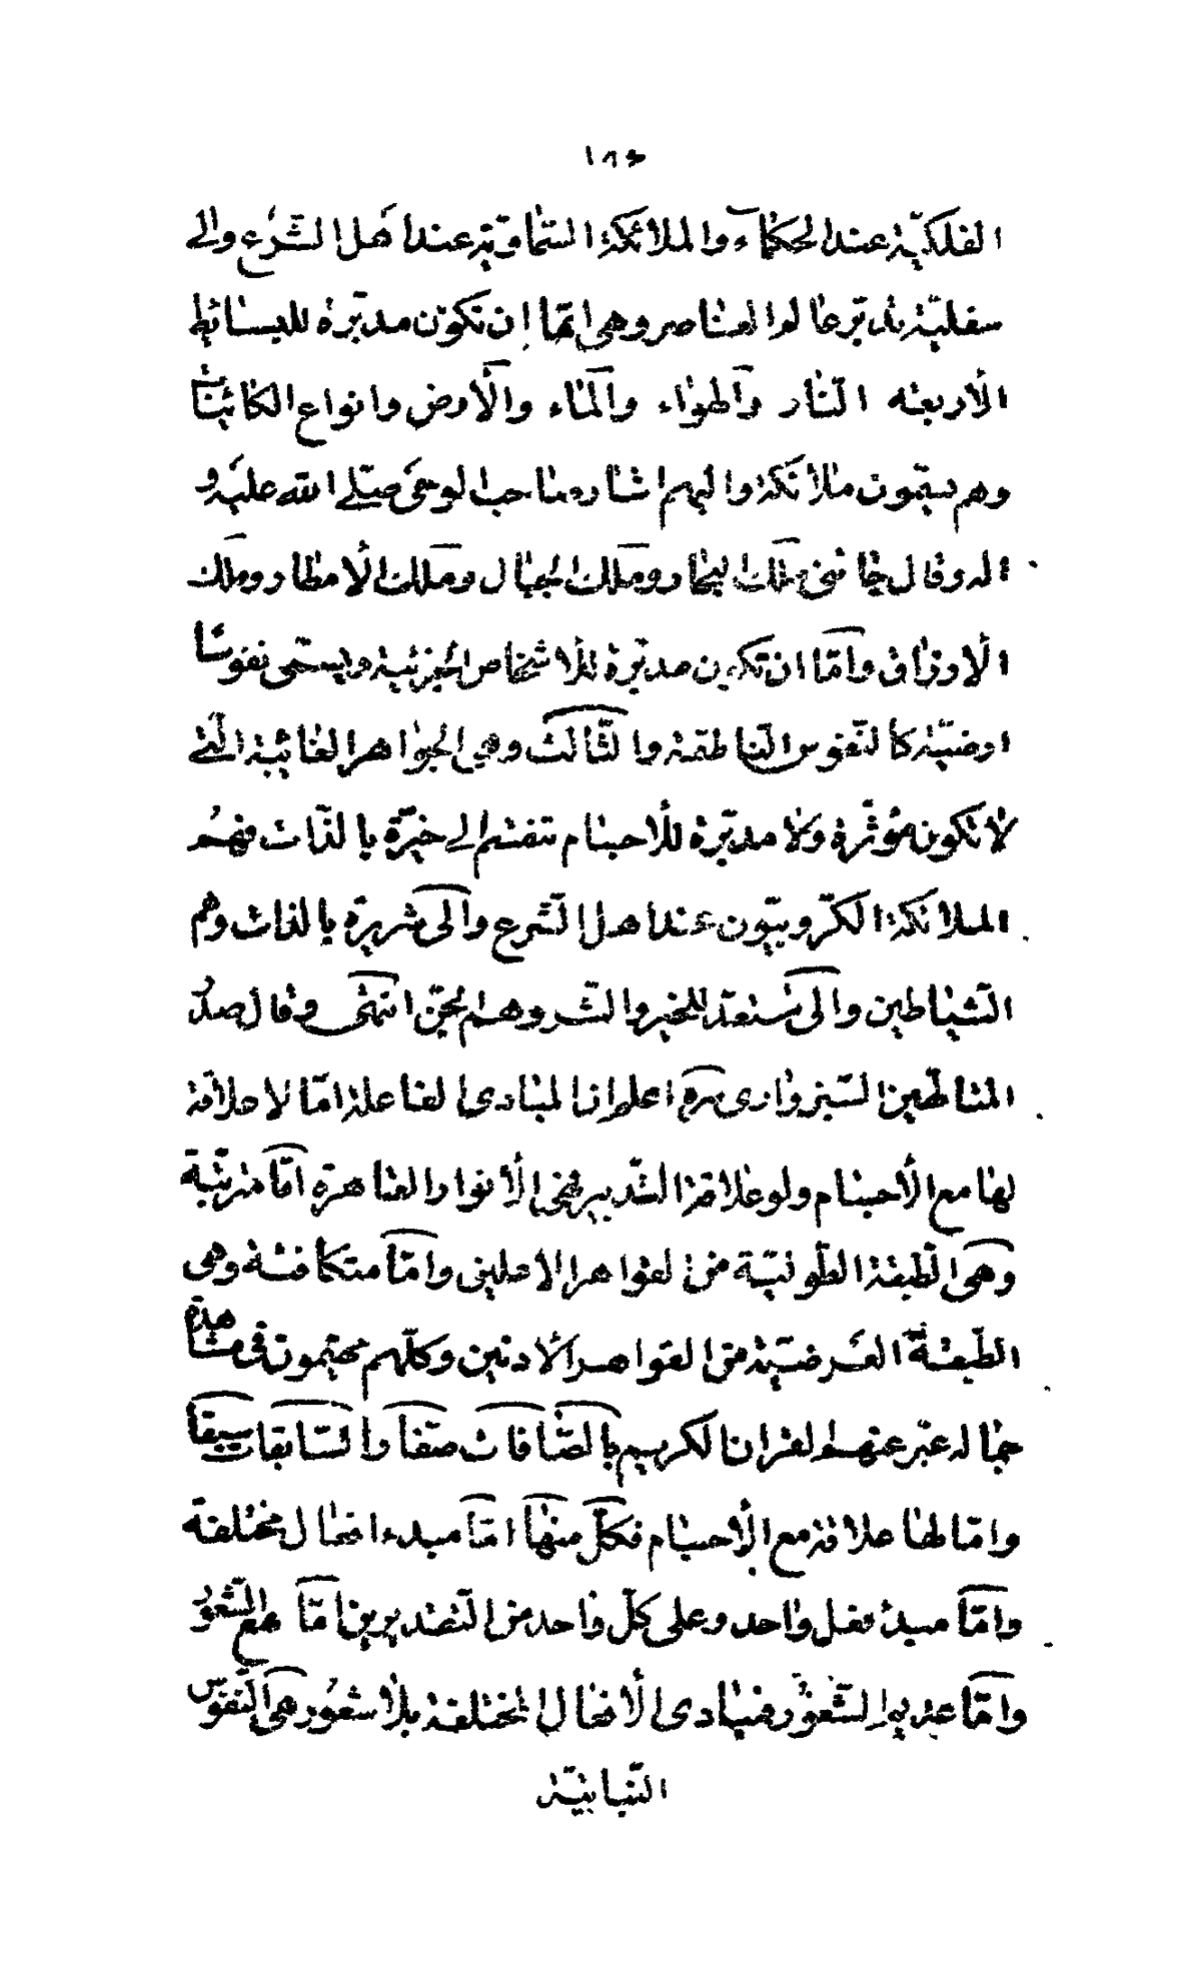 ١٨٤
الفلكيّة عند الحكماء والملائكة السّماويّة عند اهل الشّرع والى
سفليّة تدبّر عالم العناصر وهى امّا ان تكون مدبّرة للبسائط
الأربعة النّار والهواء والماء والأرض وانواع الكائنات
وهم يسمّون ملائكة واليهم اشار صاحب الوحى صلّى الله عليه و
اله وقال جائنى ملك البحار وملك الجبال وملك الأمطار وملك
الأرزاق وامّا ان تكون مدبّرة للأشخاص الجزئية ويسمّى نفوسًا
ارضيّة كالنّفوس النّاطقة والثّالث وهى الجواهر الغائبة الّتى
لا تكون مؤثّرة ولا مدبّرة للأجسام تنقسم الى خيّرة بالذّات فهم
الملائكة الكرّوبيّون عند اهل الشّرع والى شريرة بالذات وهم
الشّياطين والى مستعدّ للخير والشّر وهم الجنّ انتهى وقال صدر
المتالّهين السّبزوارى سره اعلم ان المبادى الفاعلة امّا لا علاقة
لها مع الأجسام ولو علاقة التّدبير فهى الأنوار القاهرة امّا مترتّبة
وهى الطّبقة الطّوليّة من القواهر الاعلين وامّا متكافئة وهى
الطّبقة العرضيّة من القواهر الأدنين وكلّهم مهيّمون فى مشاهدة
جماله عبّر عنهم القران الكريم بالصّافات صفّا والسّابقات سبقا
وامّا لها علاقة مع الأجسام فكلّ منها امّا مبدء افعال مختلفة
وامّا مبدء فعل واحد وعلى كلّ واحد من التّقديرين امّا مع الشّعور
وامّا عديم الشّعور فمبادى الأفعال المختلفة بلا شعور هى النّفوس
النّباتيّة